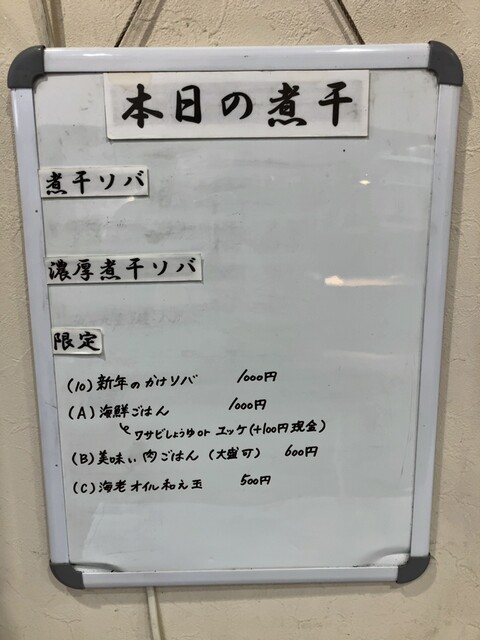 本日の煮干
煮干ソバ
濃厚煮干ソバ
限定
(10) 新年のかけソバ 1000円
(A) 海鮮ごはん 1000円
ワサビしょうゆ or ユッケ (+100円現金)
(B) 美味い肉ごはん (大盛可) 600円
(C) 海老オイル和え玉 500円